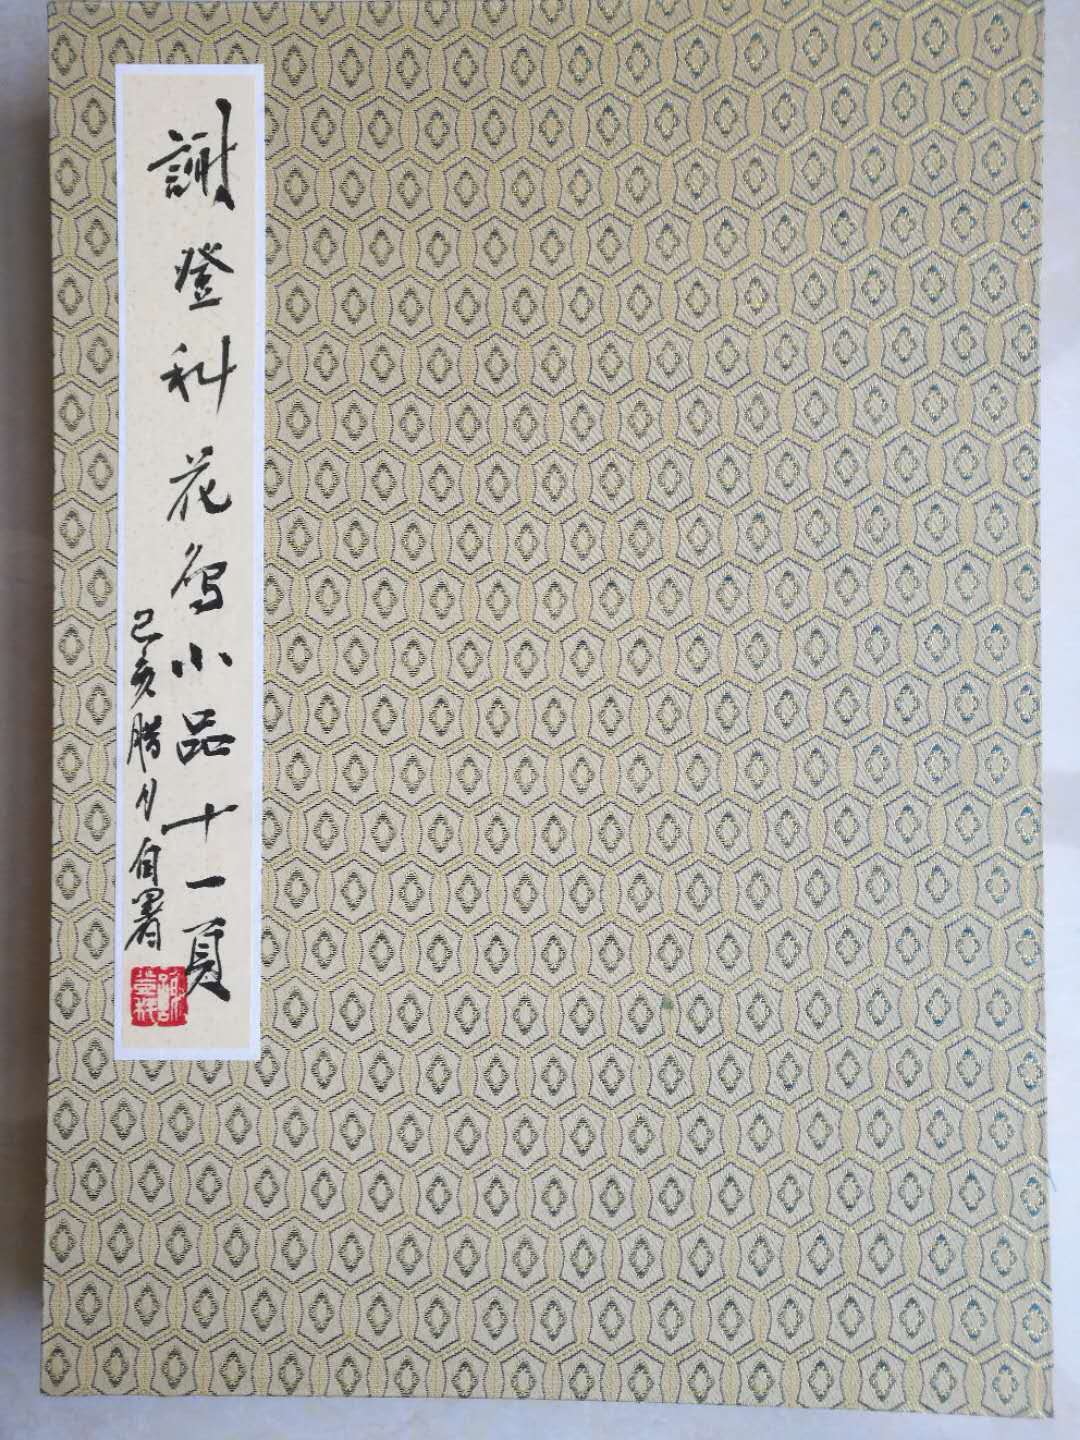 謝登科花鳥小品十一頁
己亥腊月自署
謝登科